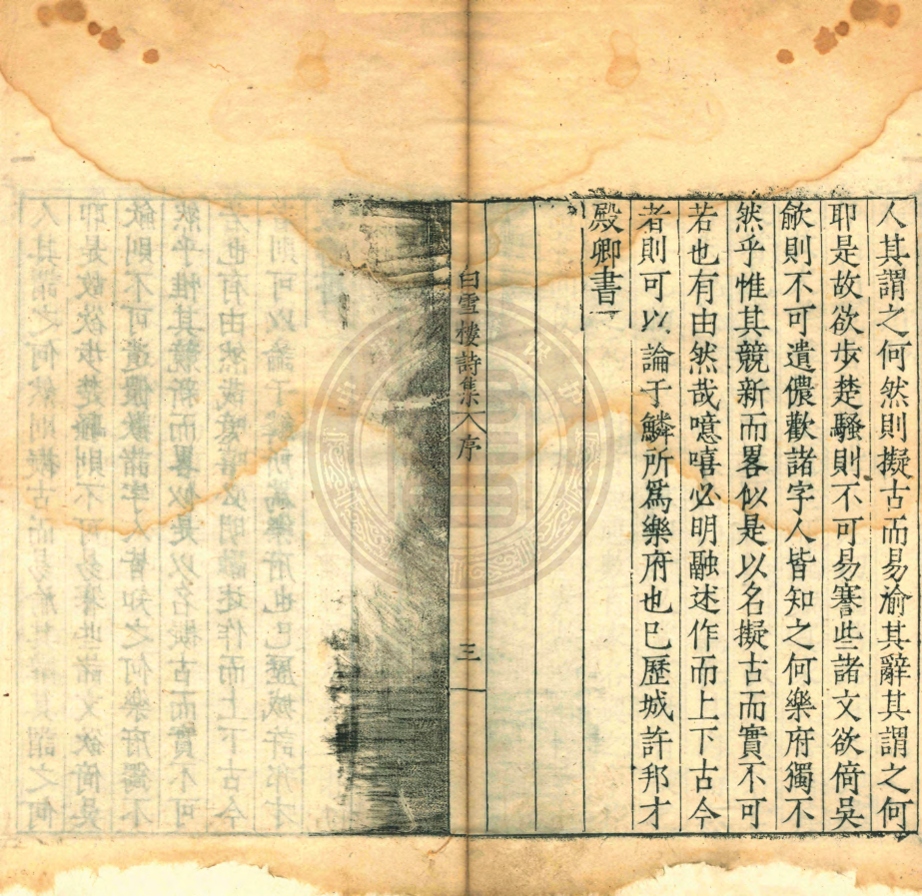 人其謂之何然則擬古而易渝其辭其謂之何
耶是故欲步楚騷則不可易謇些諸文欲倚吳
歈則不可遺儂歡諸字人皆知之何樂府獨不
然乎惟其競新而畧似是以名擬古而實不可
若也有由然哉噫嘻必明融述作而上下古今
者則可以論于鱗所爲樂府也已歷城許邦才
殿卿書
白雪樓詩集 序 三